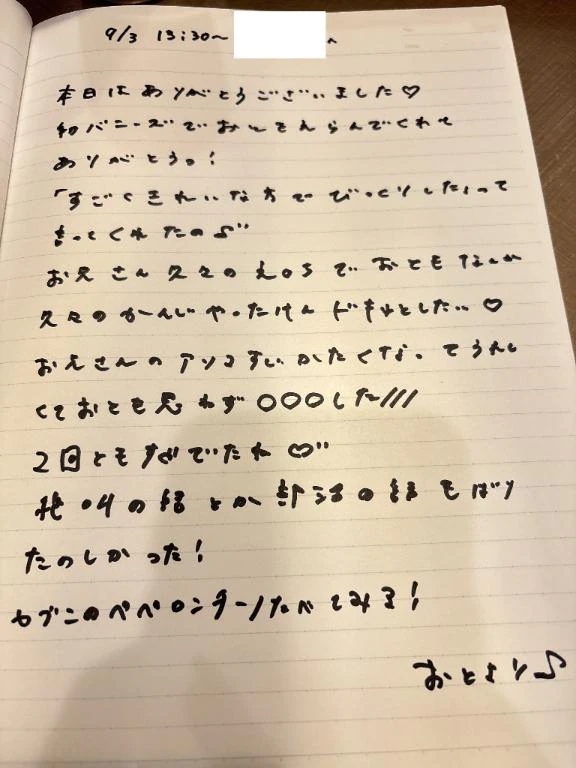 9/3 13:30〜 へ
本日はありがとうございました♡
初バニーズでおとをえらんでくれて
ありがとうっ!
「すごくきれいな方でびっくりした」って
言ってくれたの♪"
お兄さん久々のえ○ちでおともなんか
久々のかーんじやったけんドキッとした…♡
お兄さんのアソコすごいかたくなってうれし
くておとも思わず○○○した///
2回ともすぎでたね♡"
地の話とか部活の話もばり
たのしかった!
セブンのペペロンチーノたべてみる!
おとより♪